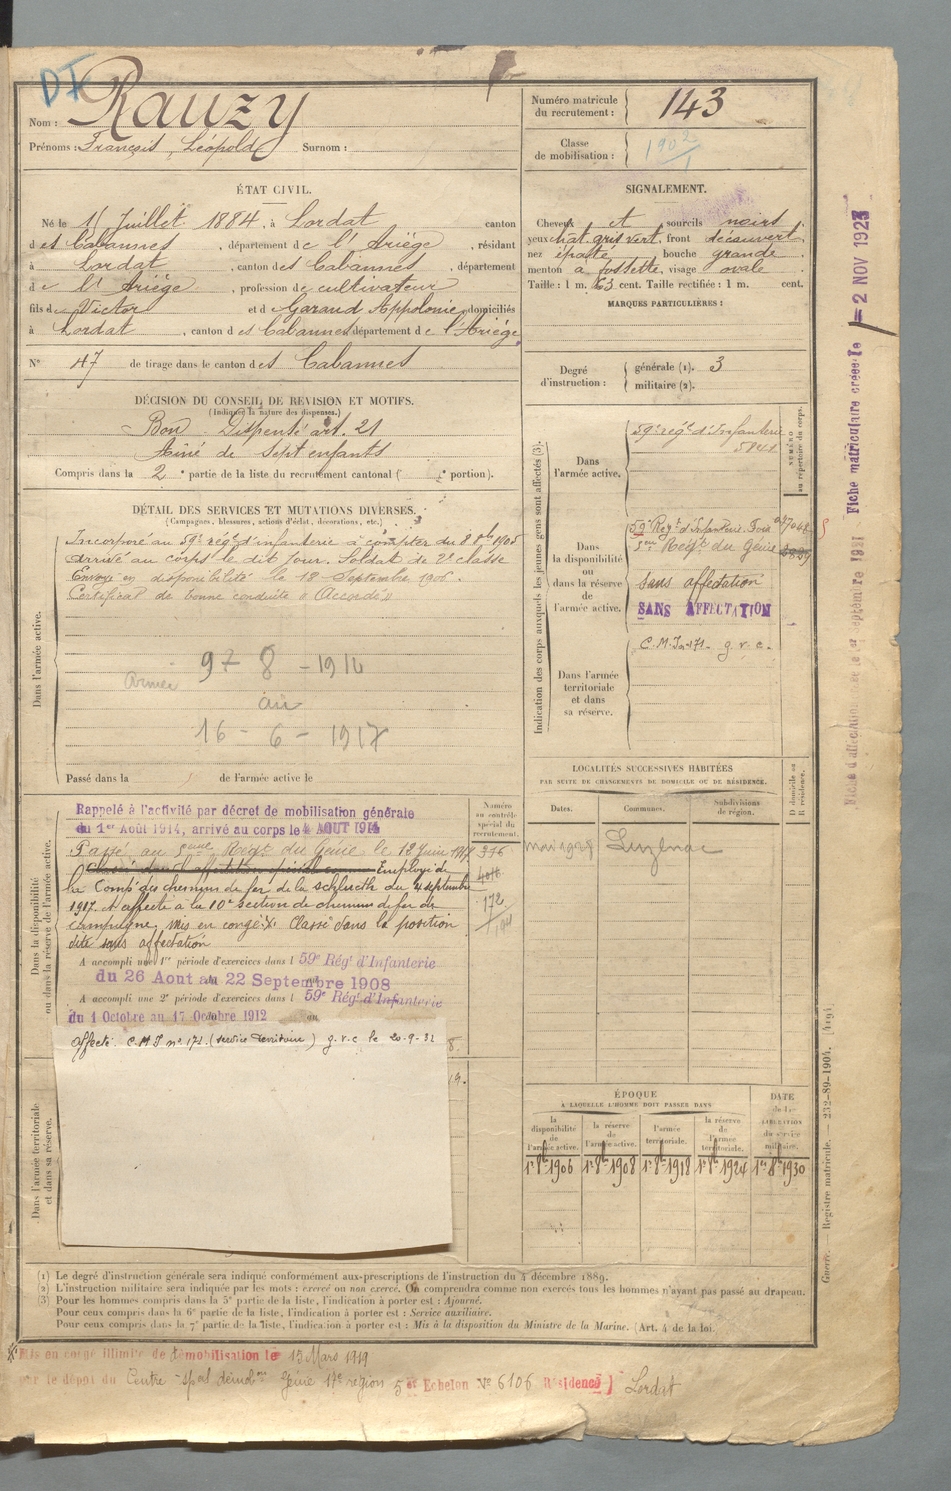 DF
Nom : Rauzy
Prénoms : François, Léopold Surnom :
Numéro matricule du recrutement : 143
Classe de mobilisation : 1902
ÉTAT CIVIL.
Né le 15 Juillet 1884, à Lordat canton
d es Cabannes, département de l'Ariège, résidant
à Lordat, canton des Cabannes, département
de l'Ariège, profession de cultivateur
fils de Victor et de Garaud Appolonie, domiciliés
à Lordat, canton des Cabannes département de l'Ariège,
N° 47 de tirage dans le canton des Cabannes
SIGNALEMENT.
Cheveux et sourcils noirs
yeux chât. gris vert, front découvert
nez épaté bouche grande
menton à fossette, visage ovale
Taille : 1 m. 63 cent. Taille rectifiée : 1 m. cent.
MARQUES PARTICULIÈRES :
Degré d'instruction : générale (1). 3
militaire (2).
DÉCISION DU CONSEIL DE REVISION ET MOTIFS.
(Indiquer la nature des dispenses.)
Bon Dispensé art. 21
Aîné de sept enfants
Compris dans la 2e partie de la liste du recrutement cantonal ( e portion).
DÉTAIL DES SERVICES ET MUTATIONS DIVERSES.
(Campagnes, blessures, actions d'éclat, décorations, etc.)
Dans l'armée active.
Incorporé au 59e rég. d'infanterie à compter du 8 8bre 1905
Arrivé au corps le dit jour. Soldat de 2e classe
Envoyé en disponibilité le 18 Septembre 1906.
Certificat de bonne conduite « Accordé »
- 8 - 1914
au
16 - 6 - 1917
Passé dans la de l'armée active le
Dans la disponibilité ou dans la réserve de l'armée active.
Numéro au contrôle spécial du recrutement.
Rappelé à l'activité par décret de mobilisation générale
du 1er Août 1914, arrivé au corps le 4 AOUT 1914
Passé au 5eme Régt du Génie le 12 Juin 1917 316
Employé de
la Comp. des chemins de fer de la Schlucht du 4 septembre
1917. Affecté à la 10e section de chemins de fer de 172
campagne, mis en congé. X. Classé dans la position
dite sans affectation
A accompli une 1re période d'exercices dans l 59e Régt d'Infanterie
du 26 Aout au 22 Septembre 1908
A accompli une 2e période d'exercices dans l 59e Régt d'Infanterie
du 1 Octobre au 17 Octobre 1912 au
Affecté C.M.I n° 171. (service territoire) g.v.c le 20-9-32
Dans l'armée territoriale et dans sa réserve.
Indication des corps auxquels les jeunes gens sont affectés (3).
NUMÉRO au répertoire du corps.
Dans l'armée active.
59e régt d'Infanterie
5841
Dans la disponibilité ou dans la réserve de l'armée active.
59e Régt d'Infanterie. Foix
5me Régt du Génie
sans affectation
SANS AFFECTATION
Dans l'armée territoriale et dans sa réserve.
C.M.I. 171. g.v.c.
LOCALITÉS SUCCESSIVES HABITÉES
PAR SUITE DE CHANGEMENTS DE DOMICILE OU DE RÉSIDENCE.
D domicile ou R résidence.
Dates. Communes. Subdivisions de région.
Luzenac
ÉPOQUE
À LAQUELLE L'HOMME DOIT PASSER DANS
DATE de la LIBÉRATION du service militaire.
la disponibilité de l'armée active. la réserve de l'armée active. l'armée territoriale. la réserve de l'armée territoriale.
1er 8bre 1906 1er 8bre 1908 1er 8bre 1918 1er 8bre 1924 1er 8bre 1930
(1) Le degré d'instruction générale sera indiqué conformément aux prescriptions de l'instruction du 4 décembre 1889.
(2) L'instruction militaire sera indiquée par les mots : exercé ou non exercé. On comprendra comme non exercés tous les hommes n'ayant pas passé au drapeau.
(3) Pour les hommes compris dans la 5e partie de la liste, l'indication à porter est : Ajourné.
Pour ceux compris dans la 6e partie de la liste, l'indication à porter est : Service auxiliaire.
Pour ceux compris dans la 7e partie de la liste, l'indication à porter est : Mis à la disposition du Ministre de la Marine. (Art. 4 de la loi.
X Mis en congé illimité de démobilisation le 15 Mars 1919
par le dépôt du Centre spal démobon Génie 17e région 5 er Echelon N° 6106 Résidence ) Lordat
Fiche matriculaire créée le = 2 NOV 1927
Guerre. — Registre matricule. — 232-89-1904. [419]